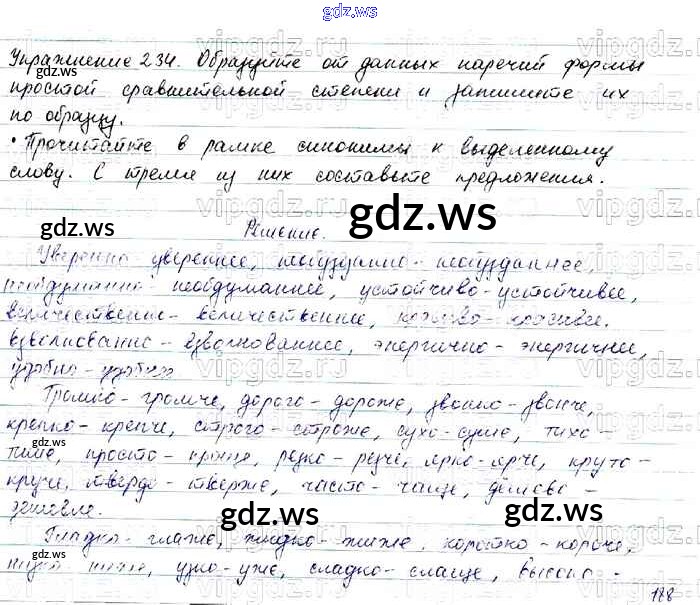 gdz.ws
Упражнение 234. Образуйте от данных наречий формы
простой сравнительной степени и запишите их
по образцу.
• Прочитайте в рамке синонимы к выделенному
слову. С тремя из них составьте предложения.
gdz.ws
Решение.
Уверенно увереннее, необузданно - необузданнее,
необдуманно - необдуманнее, устойчиво - устойчивее,
величественно - величественнее, красиво - красивее.
взволнованно - взволнованнее, энергично - энергичнее,
удобно - удобнее
Громко - громче, дорого - дороже, звонко - звонче,
крепко - крепче, строго - строже, сухо - суше, тихо -
тише, просто - проще, резко - резче, ярко - ярче, круто -
круче, твердо - тверже, часто - чаще, дёшево -
дешевле.
Гладко - глаже, жидко - жиже, коротко - короче,
низко ниже, узко - уже, сладко - слаще, высоко -
188